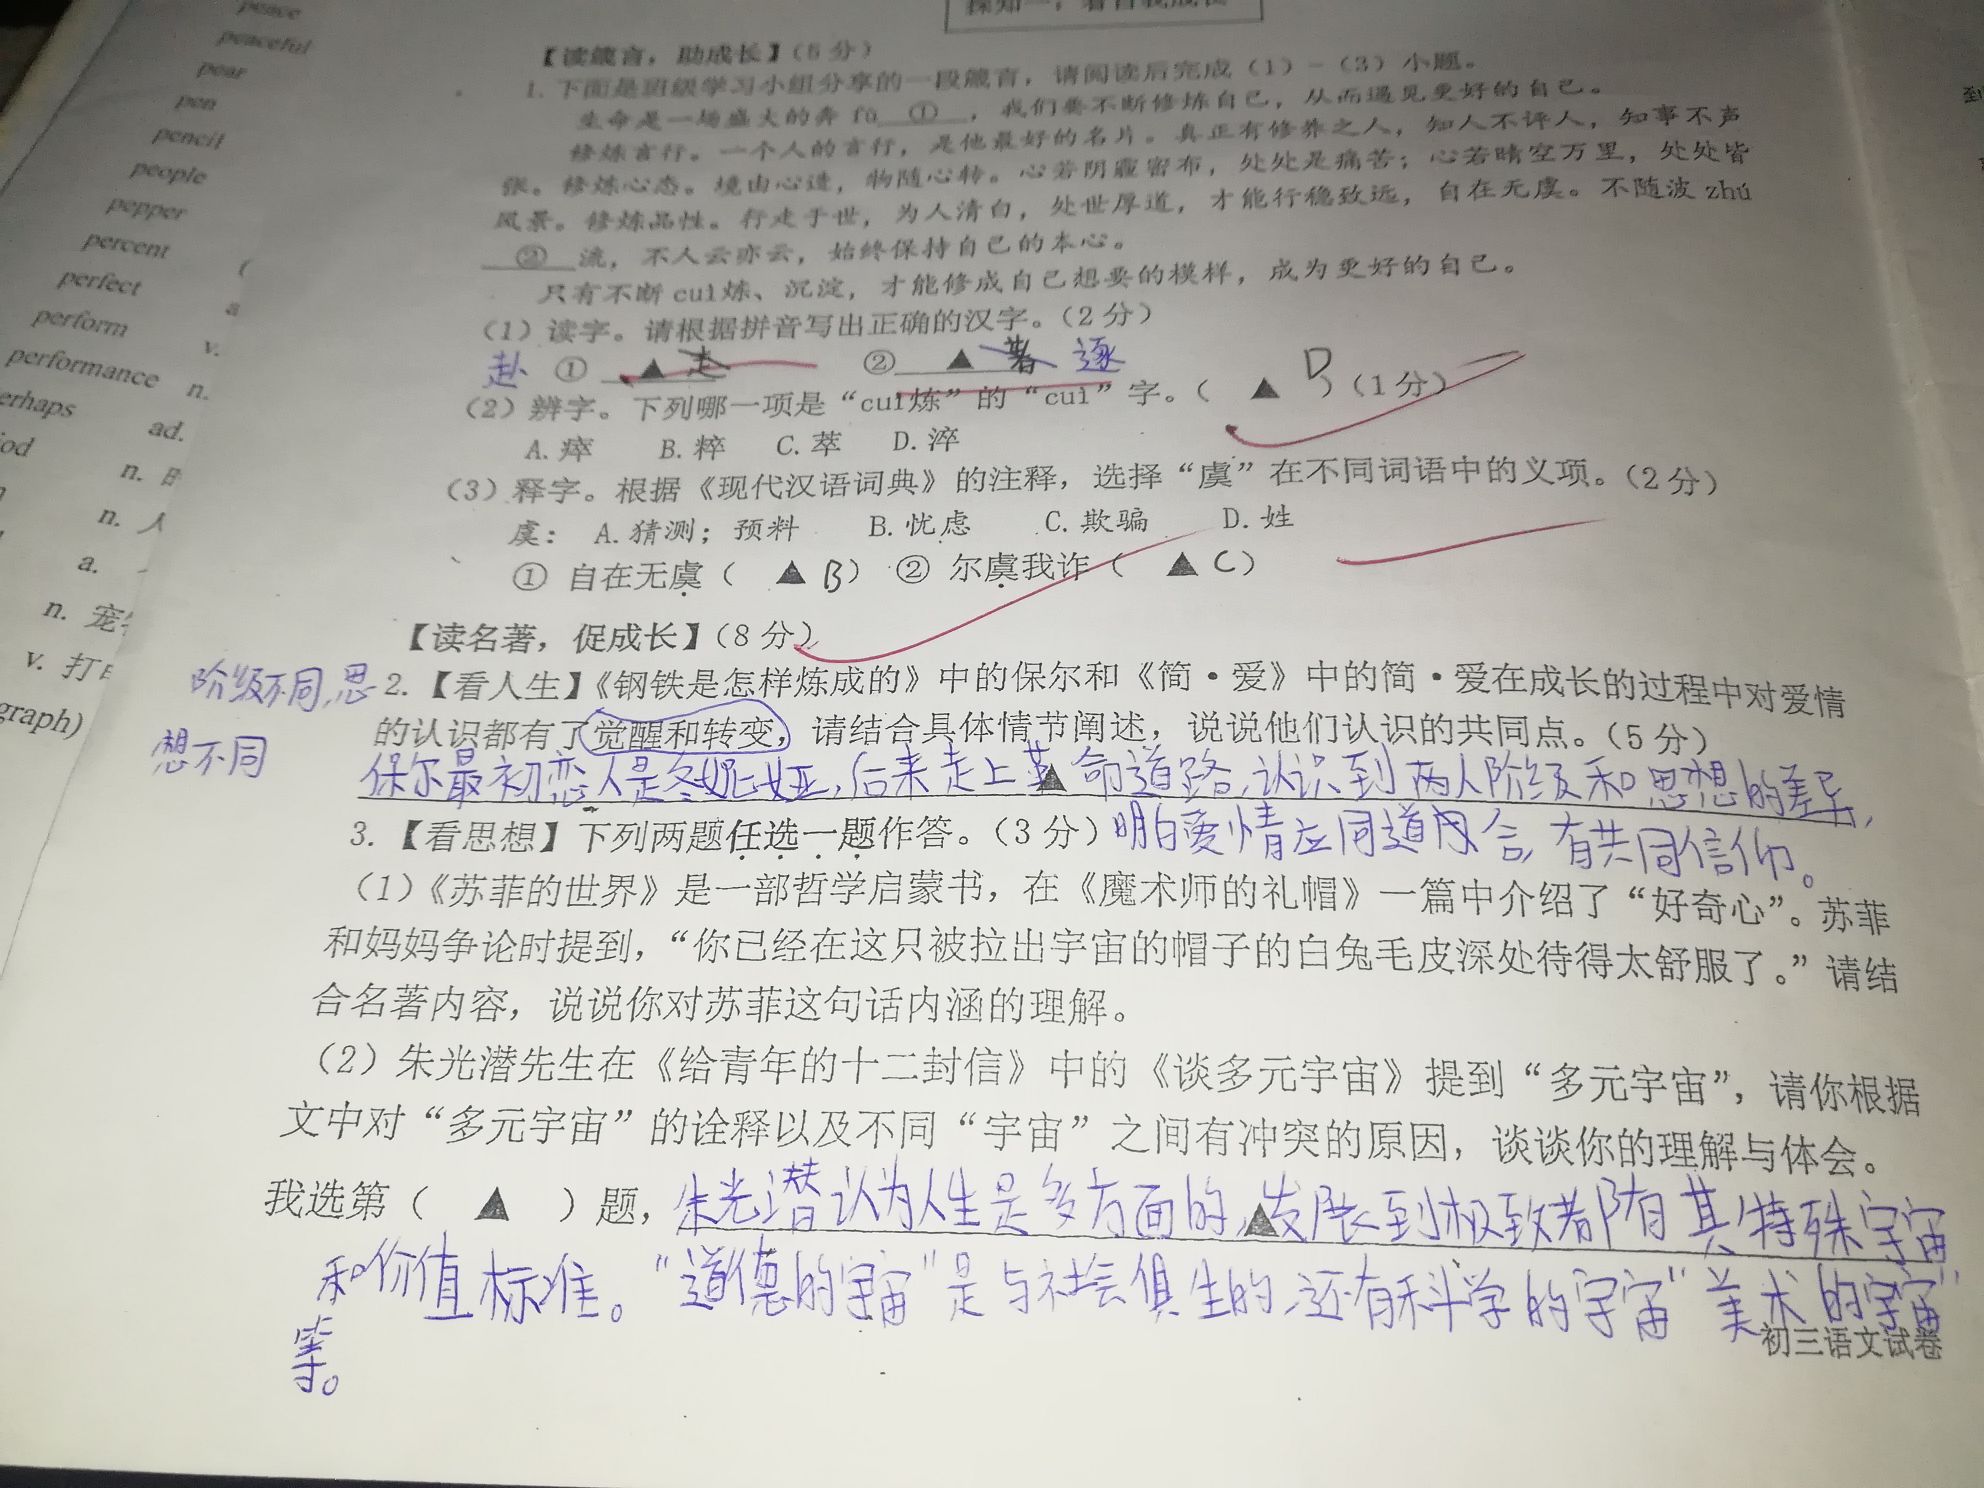 peace
peaceful
pear
pen
pencil
people
pepper
percent
perfect
perform v.
performance n.
erhaps ad.
iod n.
n. 人
a.
n. 宠
v. 打
graph)
【读箴言，助成长】(5分)
1. 下面是班级学习小组分享的一段箴言，请阅读后完成（1）-（3）小题。
生命是一场盛大的奔 fù ① ，我们要不断修炼自己，从而遇见更好的自己。
修炼言行。一个人的言行，是他最好的名片。真正有修养之人，知人不评人，知事不声
张。修炼心态。境由心造，物随心转。心若阴霾密布，处处是痛苦；心若晴空万里，处处皆
风景。修炼品性。行走于世，为人清白，处世厚道，才能行稳致远，自在无虞。不随波 zhú
② 流，不人云亦云，始终保持自己的本心。
只有不断 cuì炼、沉淀，才能修成自己想要的模样，成为更好的自己。
（1）读字。请根据拼音写出正确的汉字。（2分）
赴 ① ▲ ② ▲ 著 逐
（2）辨字。下列哪一项是“cuì炼”的“cuì”字。（ ▲ D （1分）
A. 瘁 B. 粹 C. 萃 D. 淬
（3）释字。根据《现代汉语词典》的注释，选择“虞”在不同词语中的义项。（2分）
虞： A. 猜测；预料 B. 忧虑 C. 欺骗 D. 姓
① 自在无虞（ ▲ B） ② 尔虞我诈（ ▲ C）
【读名著，促成长】（8分）
阶级不同，思
想不同
2. 【看人生】《钢铁是怎样炼成的》中的保尔和《简·爱》中的简·爱在成长的过程中对爱情
的认识都有了觉醒和转变，请结合具体情节阐述，说说他们认识的共同点。（5分）
保尔最初恋人是冬妮娅，后来走上革▲命道路，认识到两人阶级和思想的差异，
明白爱情应同道同合，有共同信仰。
3. 【看思想】下列两题任选一题作答。（3分）
（1）《苏菲的世界》是一部哲学启蒙书，在《魔术师的礼帽》一篇中介绍了“好奇心”。苏菲
和妈妈争论时提到，“你已经在这只被拉出宇宙的帽子的白兔毛皮深处待得太舒服了。”请结
合名著内容，说说你对苏菲这句话内涵的理解。
（2）朱光潜先生在《给青年的十二封信》中的《谈多元宇宙》提到“多元宇宙”，请你根据
文中对“多元宇宙”的诠释以及不同“宇宙”之间有冲突的原因，谈谈你的理解与体会。
我选第（ ▲ ）题，朱光潜认为人生是多方面的，▲发展到极致都有其特殊宇宙
和价值标准。“道德的宇宙”是与社会俱生的，还有科学的宇宙“美术的宇宙”
等。
初三语文试卷